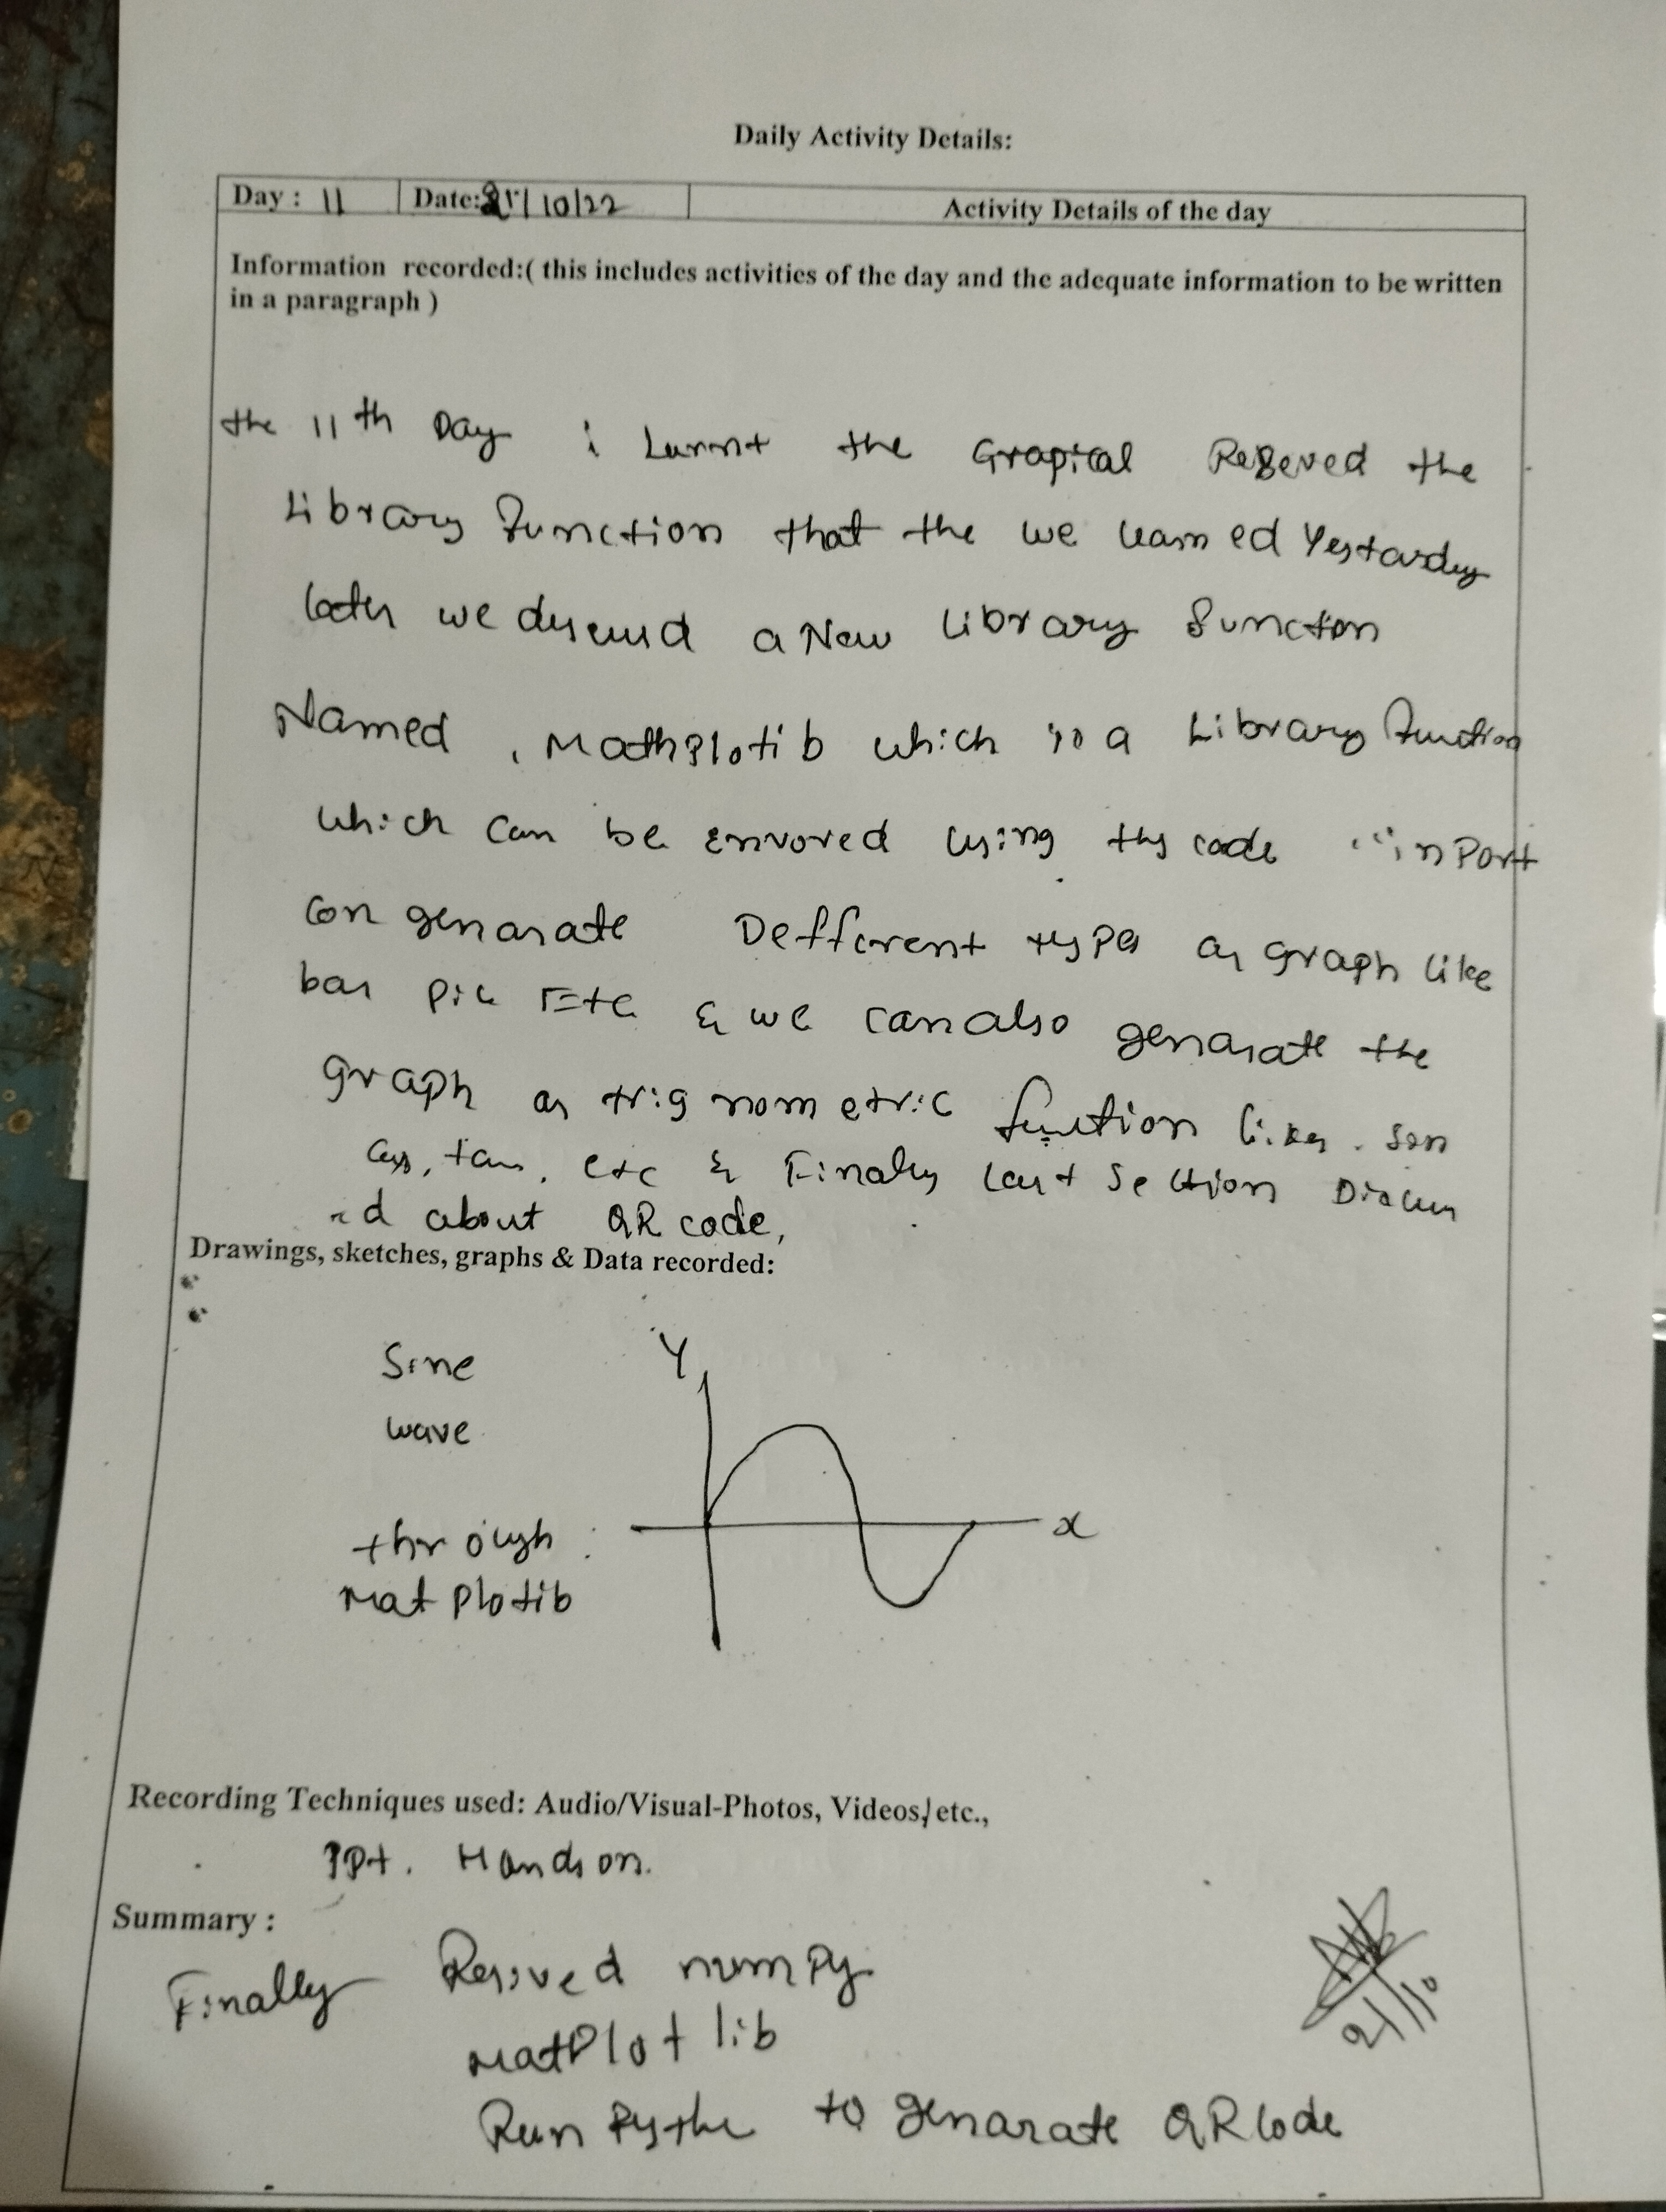 Daily Activity Details:
Day : 11 Date: 21/10/22 Activity Details of the day
Information recorded:( this includes activities of the day and the adequate information to be written
in a paragraph )
the 11th Day i Lurnt the Grapical the
Library function that the we learned Yestarday
later we a New Library function
Named , Mathplotib which is a Library function
which can be using code "inport
can genarate Defferent types graph like
bar pie Etc & we can also genarate the
graph trignometric function like, Sin
cos, tan, etc & Finaly Last Section Discuss
ed about QR code,
Drawings, sketches, graphs & Data recorded:
Sine
wave
through :
Matplotib
Y
x
Recording Techniques used: Audio/Visual-Photos, Videos, etc.,
PPt. Hands on.
Summary :
Finally Resived numpy
MatPlot lib
Run to genarate QR Code
21/10